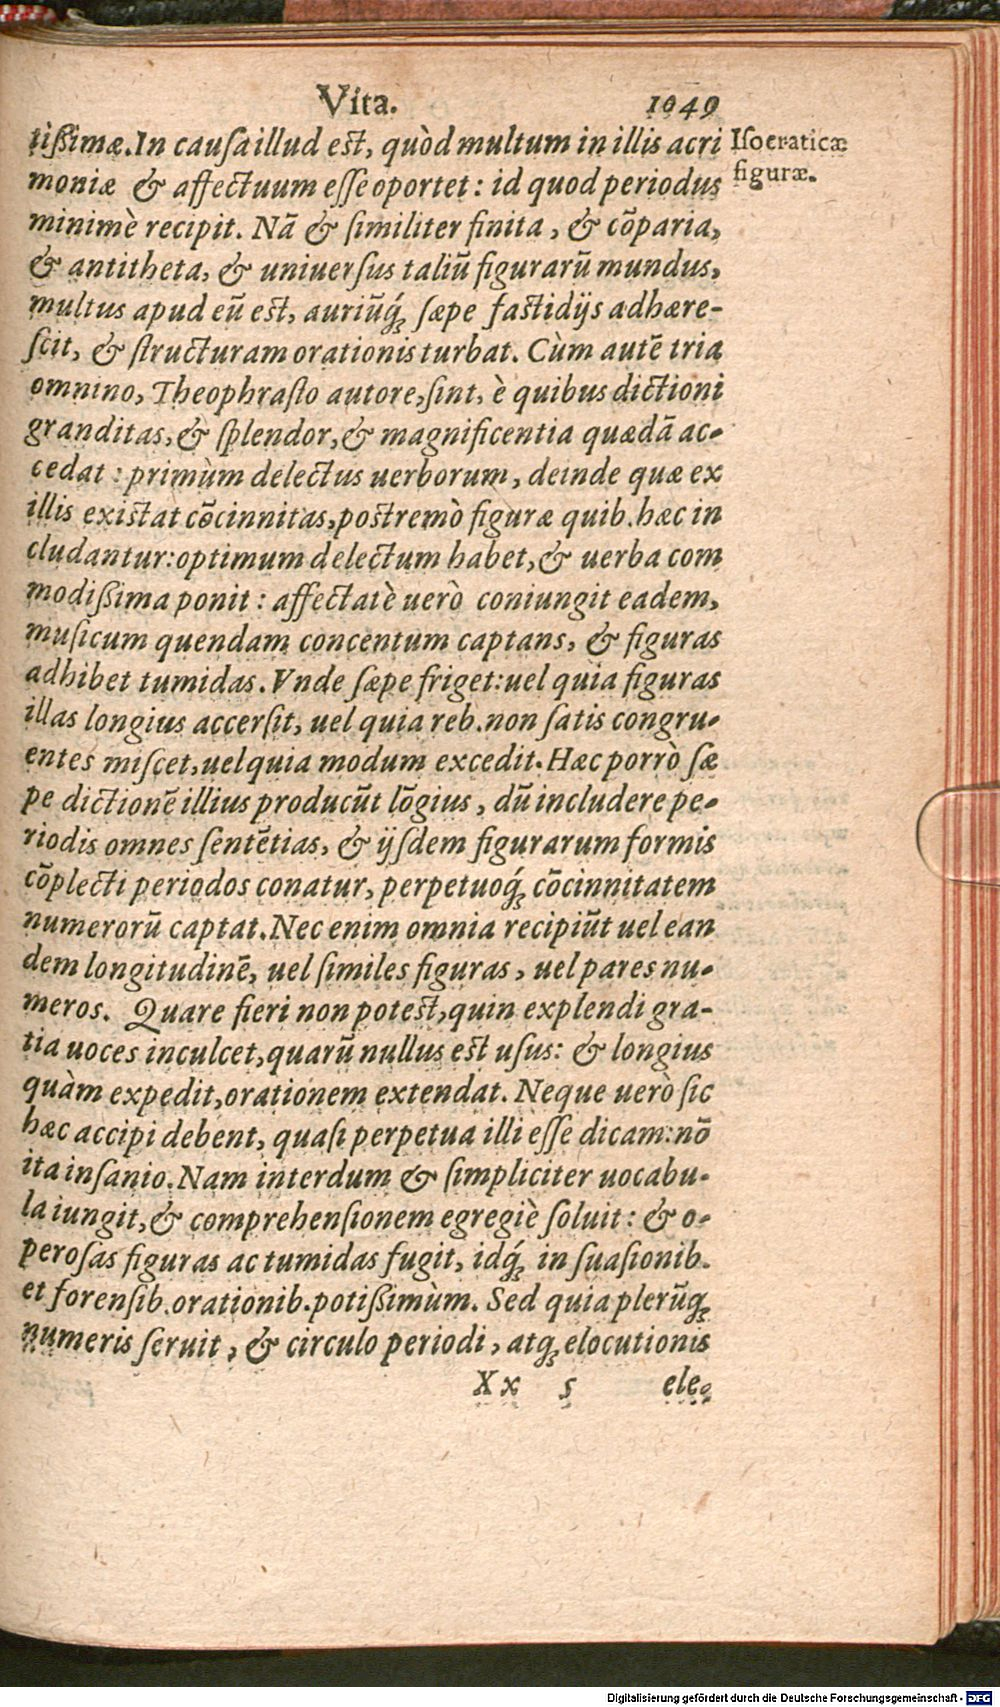 Vita. 1049
tißimæ. In causa illud est, quòd multum in illis acri
moniæ & affectuum esse oportet: id quod periodus
minimè recipit. Nã & similiter finita, & cõparia,
& antitheta, & uniuersus taliũ figurarũ mundus,
multus apud eũ est, auriũq́; sæpe fastidijs adhære-
scit, & structuram orationis turbat. Cùm autẽ tria
omnino, Theophrasto autore, sint, è quibus dictioni
granditas, & splendor, & magnificentia quædã ac-
cedat: primùm delectus uerborum, deinde quæ ex
illis existat cõcinnitas, postremò figuræ quib. hæc in
cludantur: optimum delectum habet, & uerba com
modißima ponit: affectatè uerò coniungit eadem,
musicum quendam concentum captans, & figuras
adhibet tumidas. Vnde sæpe friget: uel quia figuras
illas longius accersit, uel quia reb. non satis congru-
entes miscet, uel quia modum excedit. Hæc porrò sæ
pe dictionẽ illius producũt lõgius, dũ includere pe-
riodis omnes sentẽtias, & ijsdem figurarum formis
cõplecti periodos conatur, perpetuoq́; cõcinnitatem
numerorũ captat. Nec enim omnia recipiũt uel ean
dem longitudinẽ, uel similes figuras, uel pares nu-
meros. Quare fieri non potest, quin explendi gra-
tia uoces inculcet, quarũ nullus est usus: & longius
quàm expedit, orationem extendat. Neque uerò sic
hæc accipi debent, quasi perpetua illi esse dicam: nõ
ita insanio. Nam interdum & simpliciter uocabu-
la iungit, & comprehensionem egregiè soluit: & o-
perosas figuras ac tumidas fugit, idq́; in suasionib.
et forensib. orationib. potißimùm. Sed quia plerũq;
numeris seruit, & circulo periodi, atq; elocutionis
Xx 5 ele-
Isocraticæ
figuræ.
Digitalisierung gefördert durch die Deutsche Forschungsgemeinschaft - DFG